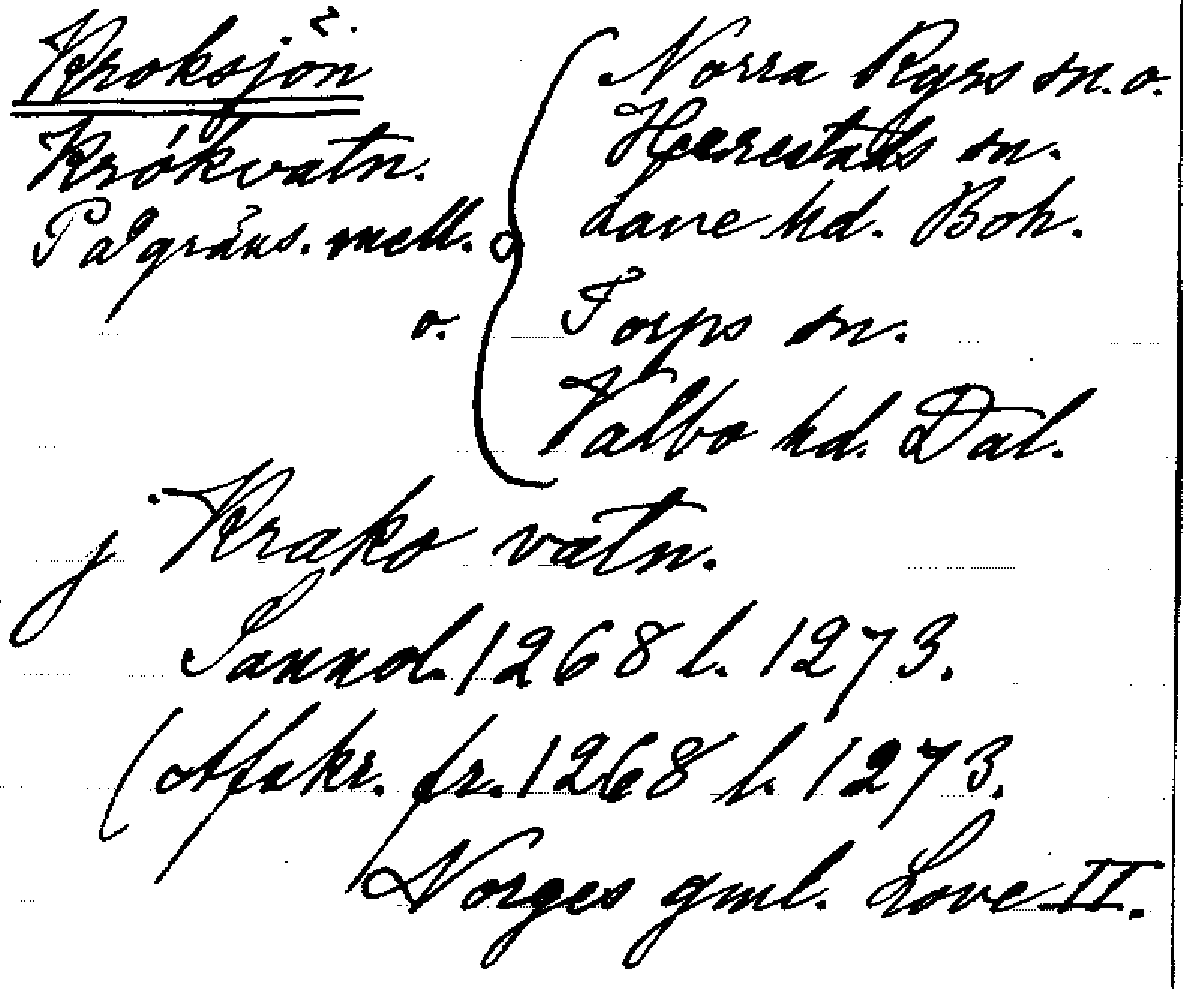 Kroksjön 2.
Krókvatn.
På gräns. mell.
Norra Ryrs sn. o.
Herrestads sn.
Lane hd. Boh.
o.
Torps sn.
Valbo hd. Dal.
j Krako vatn.
Sannol. 1268 l. 1273.
(Afskr. fr. 1268 l. 1273.
Norges gml. Love II.